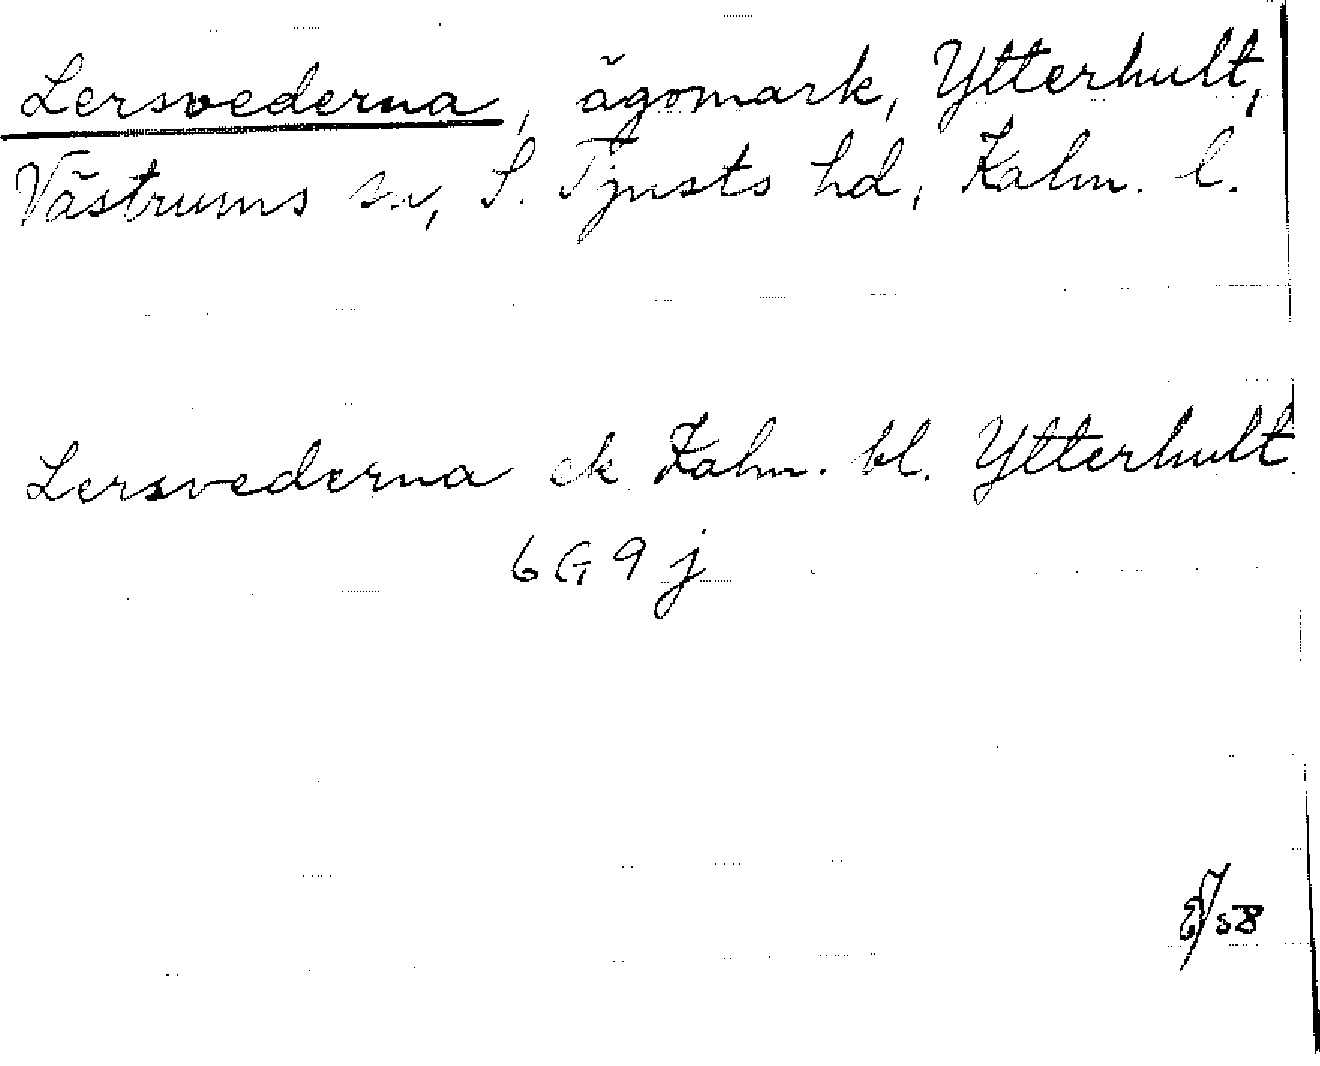 Lersvederna, ägomark, Ytterhult,
Västrums sn, S. Tjusts hd, Kalm. l.
Lersvederna ek Kalm. bl. Ytterhult
6G9j
58